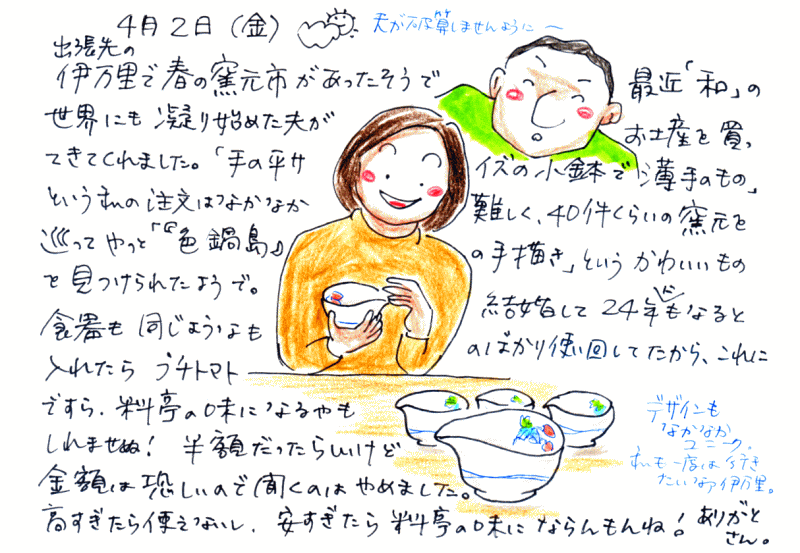 4月2日(金)
夫が破算しませんように〜
出張先の
伊万里で春の窯元市があったそうで 最近「和」の
世界にも凝り始めた夫が お土産を買っ
てきてくれました。「手の平サイズの小鉢で薄手のもの」
という私の注文はなかなか 難しく、40件くらいの窯元を
巡ってやっと「『色鍋島』の手描き」というかわいいもの
を見つけられたようで。 結婚して24年もなると
食器も同じようなものばかり使い回してたから、これに
入れたら プチトマト
ですら、料亭の味になるやも
しれませぬ! 半額だったらしいけど
金額は恐しいので聞くのはやめました。
高すぎたら使えないし、安すぎたら料亭の味にならんもんね! ありがと
さん。
デザインも
なかなか
ユニーク。
私も一度は行き
たいなァ伊万里。